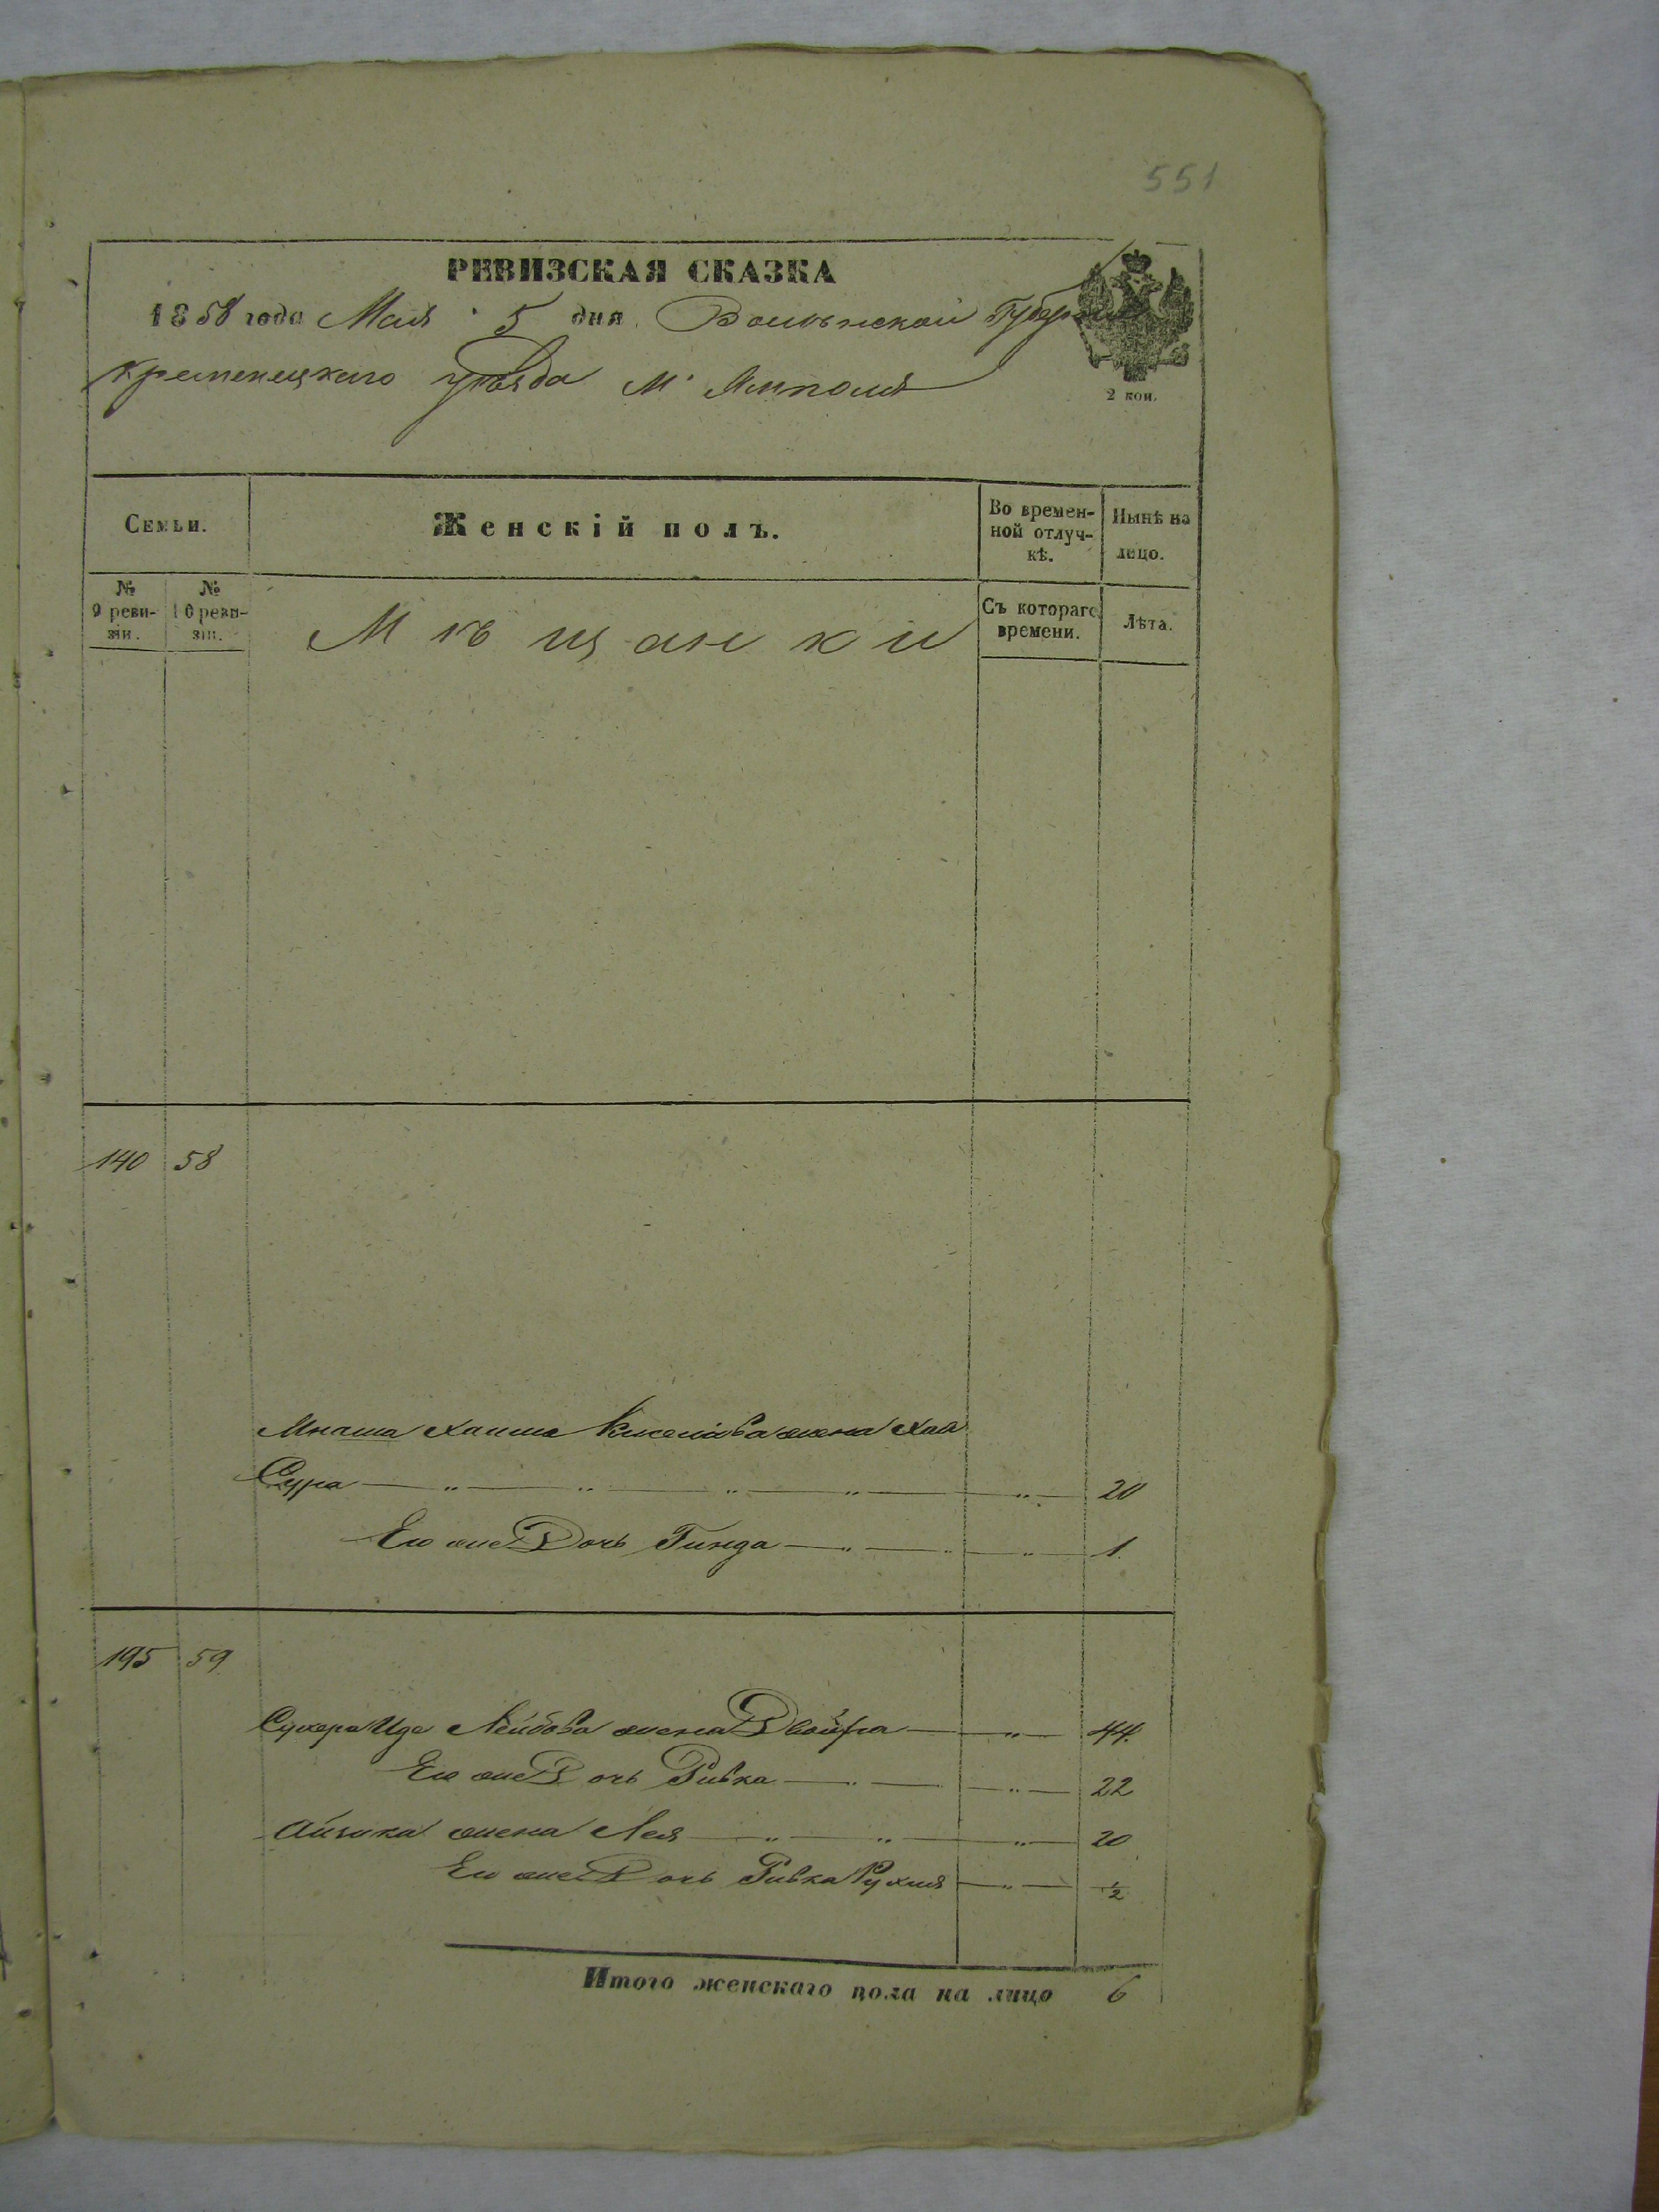 551
РЕВИЗСКАЯ СКАЗКА
1858 года Мая 5 дня Волынской Губерніи
Кременецкаго уѣзда М. Ямполя
2 коп.
Семьи.
Женскій полъ.
Во времен-
ной отлуч-
кѣ.
Нынѣ на
лицо.
№
9 реви-
зіи.
№
10 реви-
зіи.
Мѣщанки
Съ котораго
времени.
Лѣта.
140 58
Мнаша Хаима жена Хая
Сура — " — " — " — " — " — 20
Его же Дочь Гинда — " — " — " — 1.
195 59
Лейбова жена Двойра — " — 44.
Его же Дочь Ривка — " — " — 22
Айзика жена Лея — " — " — " — 20
Его же Дочь Ривка Рухля — " — 1/2
Итого женскаго пола на лицо 6